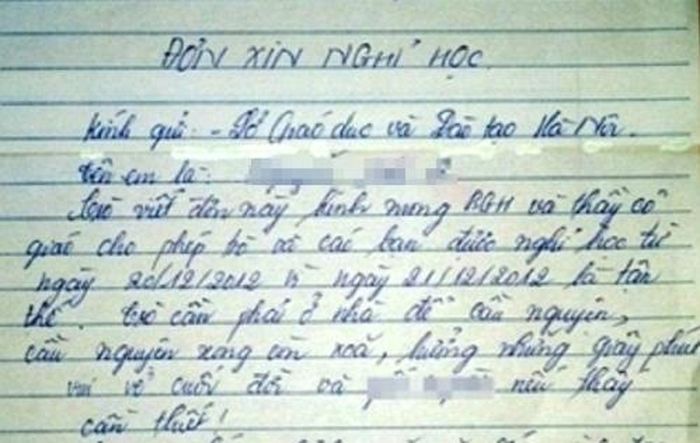 ĐƠN XIN NGHỈ HỌC.
Kính gửi: - Sở Giáo dục và Đào tạo Hà Nội.
Tên em là:
Trò viết đơn này kính mong BGH và thầy cô
giáo cho phép trò và các bạn được nghỉ học từ
ngày 20/12/2012 vì ngày 21/12/2012 là tận
thế. Trò cần phải ở nhà để cầu nguyện,
cầu nguyện xong còn xoã, hưởng những giây phút
vui vẻ cuối đời và nếu thấy
cần thiết!